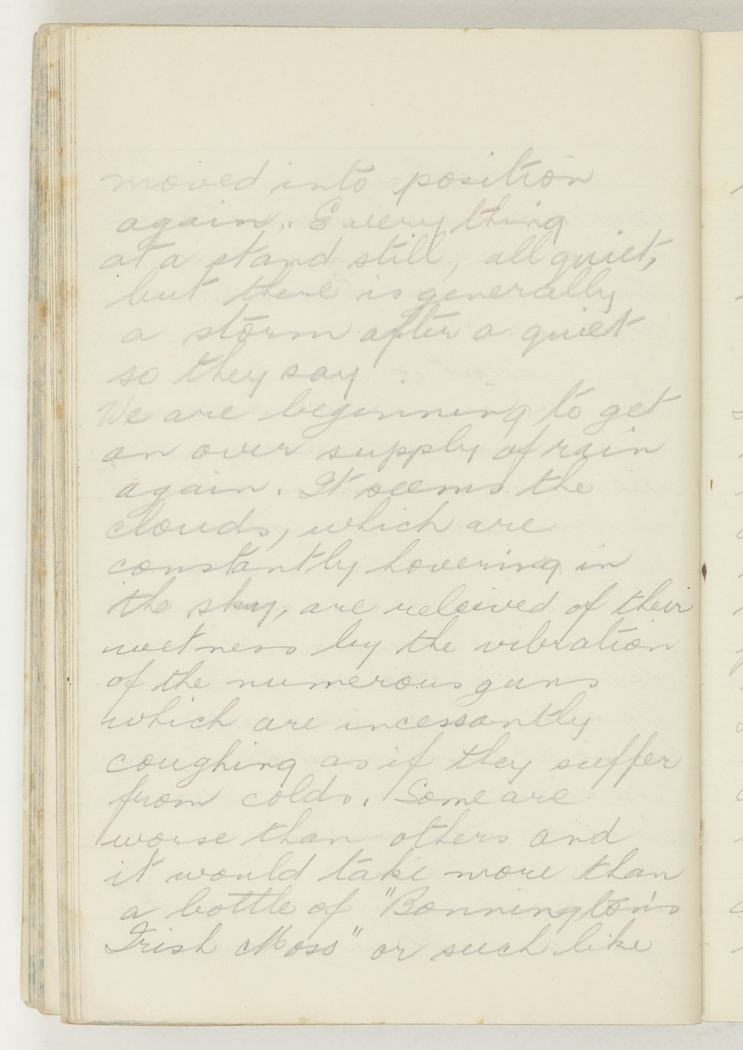 moved into position
again. Everything
at a stand still, all quiet,
but there is generally
a storm after a quiet
so they say
We are beginning to get
an over supply of rain
again. It seems the
clouds, which are
constantly hovering in
the sky, are releived of their
wetness by the vibration
of the numerous guns
which are incessantly
coughing as if they suffer
from colds. Some are
worse than others and
it would take more than
a bottle of "Bonnington's
Irish Moss" or such like